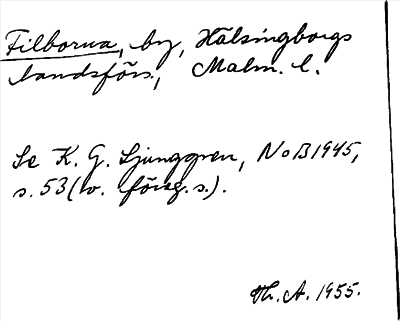 Filborna, by, Hälsingborgs
landsförs., Malm. l.
Se K. G. Ljunggren, NoB 1945,
s. 53 (o. föreg. s.).
Th. A. 1955.